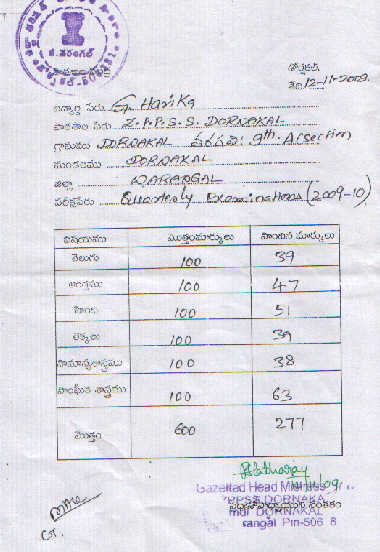 జి. వరంగల్
డోర్నకల్,
తేది 12-11-2009.
విద్యార్థి పేరు G. Harika
పాఠశాల పేరు Z.P.P.S.S. DORNAKAL
గ్రామము DORNAKAL తరగతి 9th A section
మండలము DORNAKAL
జిల్లా WARANGAL
పరీక్షపేరు Quarterly Examinations (2009-10)
విషయము మొత్తంమార్కులు పొందిన మార్కులు
తెలుగు 100 39
ఆంగ్లము 100 47
హిందీ 100 51
లెక్కలు 100 39
సామాన్యశాస్త్రము 100 38
సాంఘీక శాస్త్రము 100 63
మొత్తం 600 277
Gazetted Head Mistress
ZPPSS DORNAKA
ప్రధానోపాధ్యాయుని సంతకం
mdl DORNAKAL
arangal Pin-506